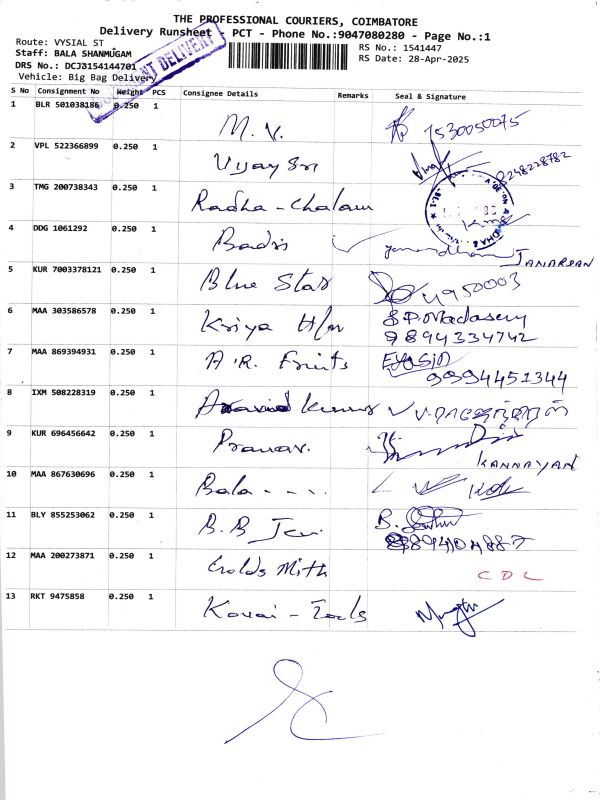 THE PROFESSIONAL COURIERS, COIMBATORE
Delivery Runsheet - PCT - Phone No.:9047080280 - Page No.:1
Route: VYSIAL ST
Staff: BALA SHANMUGAM
DRS No.: DCJB154144701
Vehicle: Big Bag Delivery
RS No.: 1541447
RS Date: 28-Apr-2025
DELIVERY
S No Consignment No Weight PCS Consignee Details Remarks Seal & Signature
1 BLR 501038186 0.250 1 M. V. 7530050075
2 VPL 522366899 0.250 1 Vijay Sri 8248228782
3 TMG 200738343 0.250 1 Radha - Chalam
4 DDG 1061292 0.250 1 Badri Janardhan JANARDAN
5 KUR 7003378121 0.250 1 Blue Star
6 MAA 303586578 0.250 1 Kriya 9894334742
7 MAA 869394931 0.250 1 A.R. Fruits 9994451344
8 IXM 508228319 0.250 1 Aravind Kumar
9 KUR 696456642 0.250 1 Pranav. KANNAYAN
10 MAA 867630696 0.250 1 Bala - - -.
11 BLY 855253062 0.250 1 B. B B.
12 MAA 200273871 0.250 1 Smith CDL
13 RKT 9475858 0.250 1 Kovai - Tools